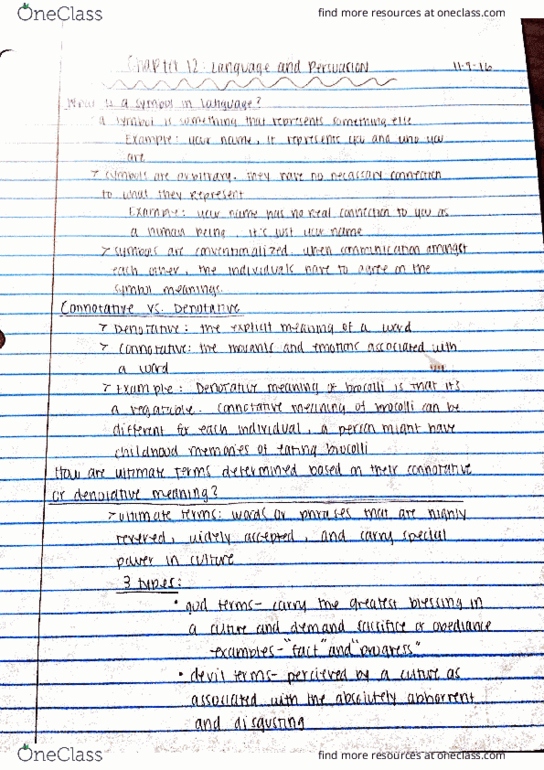 OneClass find more resources at oneclass.com
Chapter 12: Language and Persuasion 11-9-16
What is a symbol in language?
a symbol is something that represents something else
Example: your name, it represents you and who you
are
> symbols are arbitrary. they have no necassary connection
to what they represent
Example: your name has no real connection to you as
a human being, it's just your name
> symbols are conventionalized. when communication amongst
each other, the individuals have to agree on the
symbol meanings
Connotative vs. Denotative
> Denotative: the explicit meaning of a word
> connotative: the and emotions associated with
a word
> Example: Denotative meaning of brocolli is that it's
a vegatable. connotative meaning of brocolli can be
different for each individual, a person might have
childhood memories of eating brocolli
How are ultimate terms determined based on their connotative
or denotative meaning?
> ultimate terms: words or phrases that are highly
revered, widely accepted, and carry special
power in culture
3 types:
• god terms- carry the greatest blessing in
a culture and demand sacrifice or obediance
-examples-"fact" and "progress"
• devil terms- percieved by a culture as
associated with the absolutely abhorrent
and disgusting
OneClass find more resources at oneclass.com